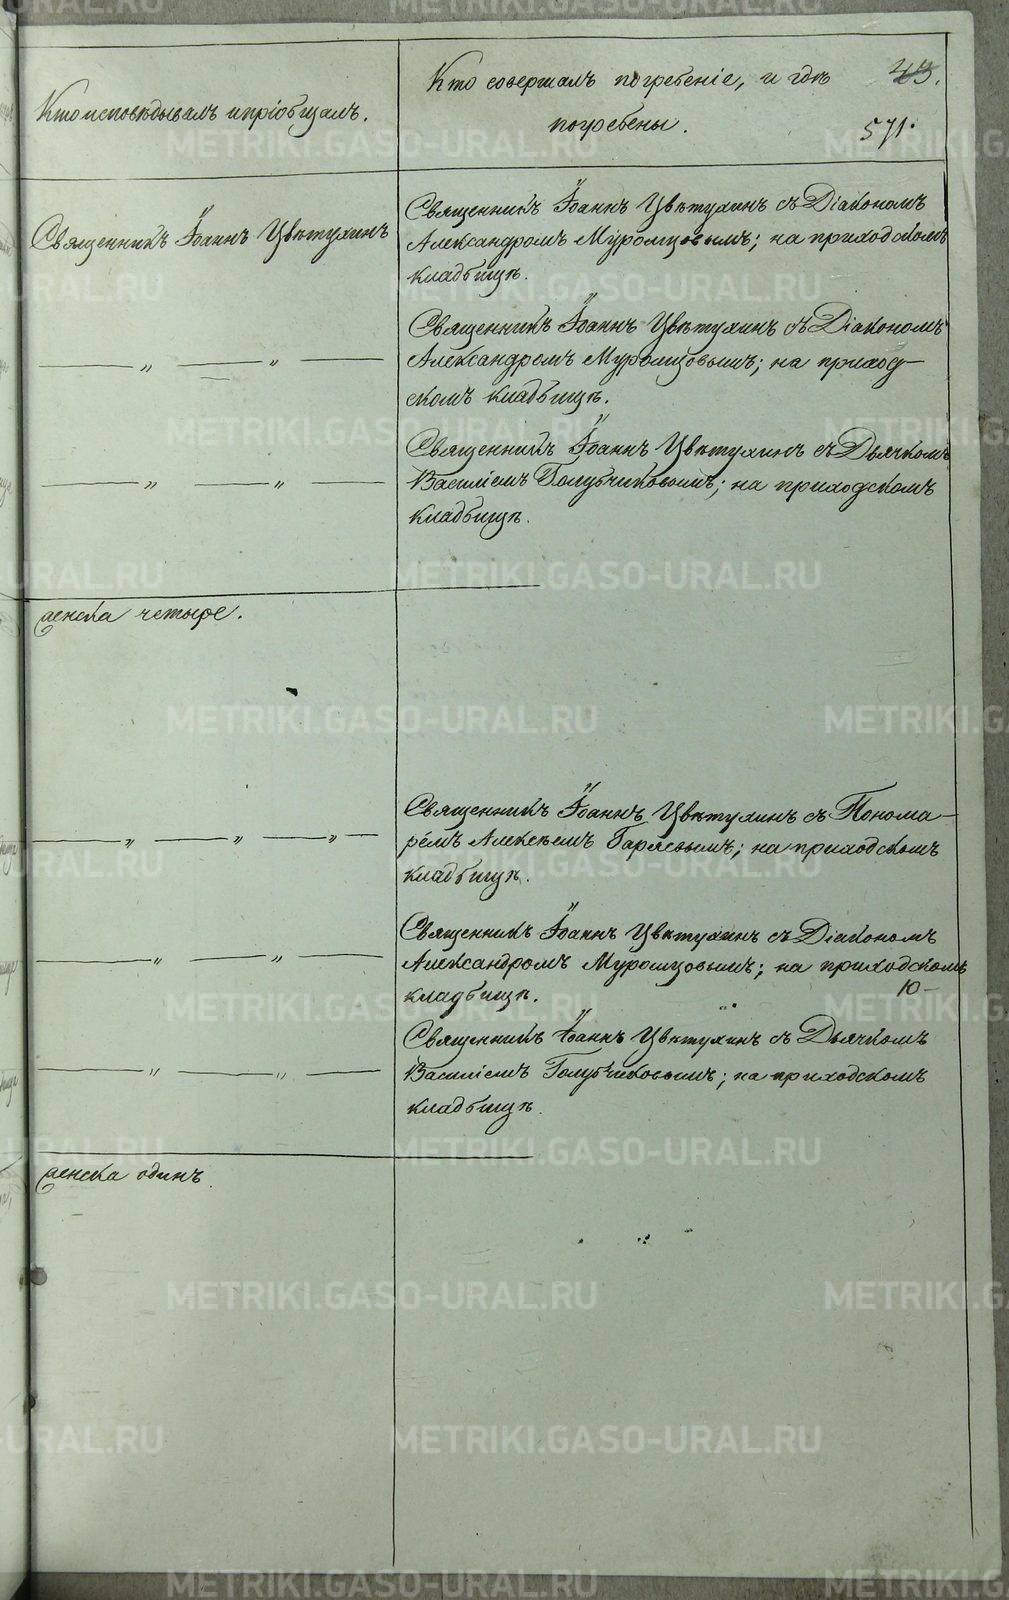 Кто исповѣдывалъ и пріобщалъ.
Кто совершалъ погребеніе, и гдѣ
погребены.
49.
571.
Священникъ Іоаннъ Цвѣтухинъ
Священникъ Іоаннъ Цвѣтухинъ съ Діакономъ
Александромъ Муромцовымъ; на приходскомъ
кладбищѣ.
— „ — „ —
Священникъ Іоаннъ Цвѣтухинъ съ Діакономъ
Александромъ Муромцовымъ; на приход-
скомъ кладбищѣ.
— „ — „ —
Священникъ Іоаннъ Цвѣтухинъ съ Дьячкомъ
Василіемъ Голубчиковымъ; на приходскомъ
кладбищѣ.
женска четыре.
— „ — „ — „ —
Священникъ Іоаннъ Цвѣтухинъ съ Понома-
рёмъ Алексѣемъ; на приходскомъ
кладбищѣ.
— „ — „ —
Священникъ Іоаннъ Цвѣтухинъ съ Діакономъ
Александромъ Муромцовымъ; на приходскомъ
кладбищѣ.
10-
— „ — „ —
Священникъ Іоаннъ Цвѣтухинъ съ Дьячкомъ
Василіемъ Голубчиковымъ; на приходскомъ
кладбищѣ.
женска одинъ.
METRIKI.GASO-URAL.RU